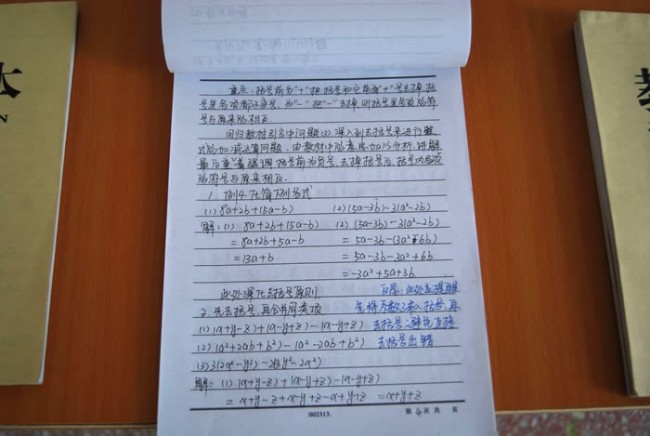 重点:括号前为"+"把括号和它前面"+"号去掉,括
号里各项都不变号,为"-"把"-"去掉,则括号里各项的符
号与原来的相反。
回归教材引言中问题(2),深入到去括号来进行整
式的加减法问题,由教材中的意思加以分析,讲解
最后重点强调:括号前为负号,去掉括号后,括号内各项
的符号与原来相反。
1. 例4.化简下列各式
(1) 8a+2b+(5a-b) (2) (5a-3b)-3(a²-2b)
解:(1) 8a+2b+(5a-b) (2) (5a-3b)-3(a²-2b)
=8a+2b+5a-b =5a-3b-(3a²-6b)
=13a+b =5a-3b-3a²+6b
=-3a²+5a+3b
此处深化去括号原则
2. 先去括号,再合并同类项
先将系数乘入括号,再
(1) (x+y-z)+(x-y+z)-(x-y+z) 去括号,避免直接
(2) (a²+2ab+b²)-(a²-2ab+b²) 去括号出错
(3) 3(2x²-y²)-2(3y²-2x²)
解:(1) (x+y-z)+(x-y+z)-(x-y+z)
=x+y-z+x-y+z-x+y+z =x+y+z
002515.
第 4 页 共 页
本
N
教